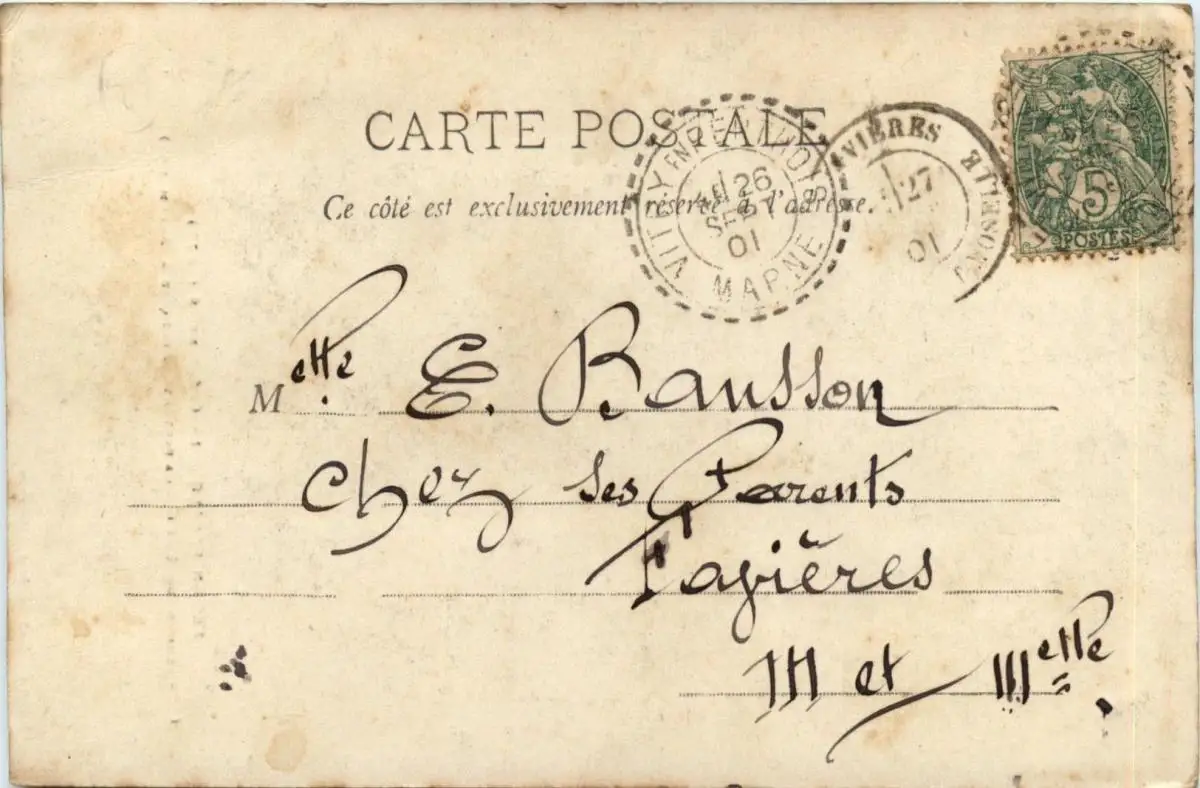 CARTE POSTALE
Ce côté est exclusivement réservé à l'adresse.
VITRY EN PERTHOIS
26
SEPT
01
MARNE
27
01
5c
POSTES
Melle. E. Bausson
chez ses Parents
Fagières
M et Melle